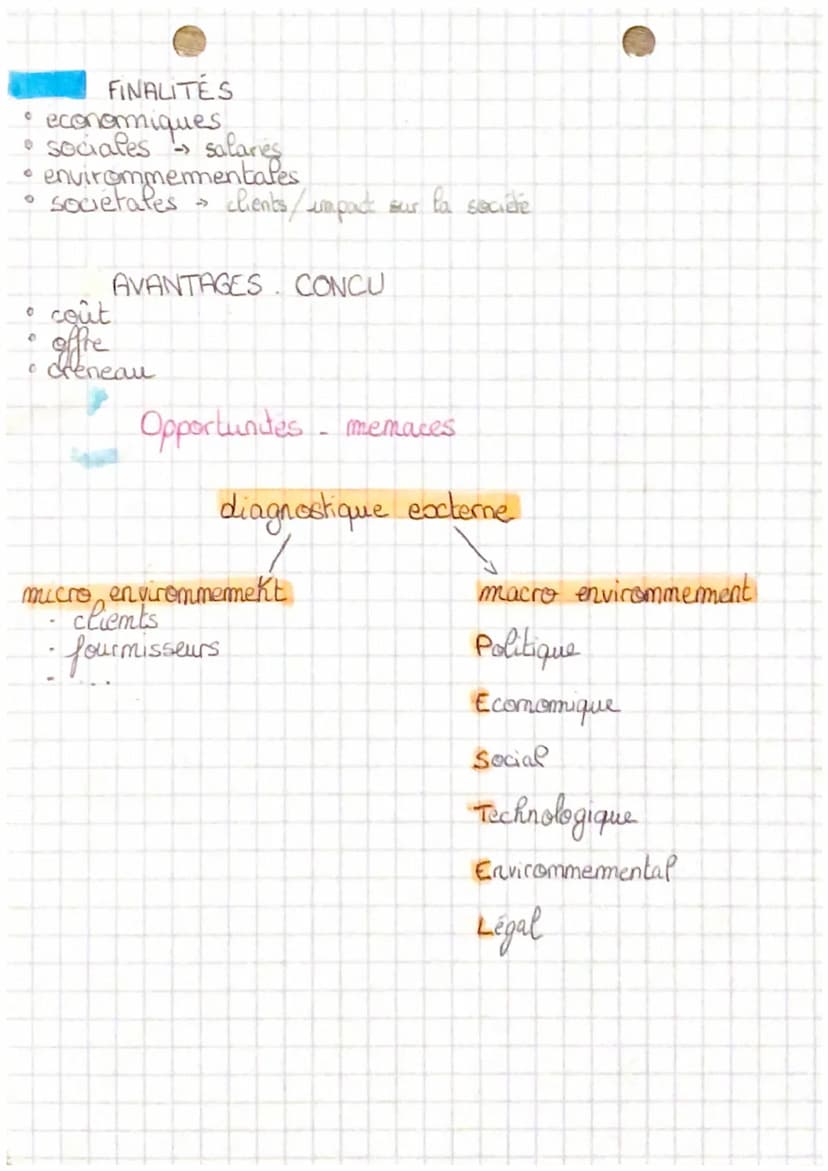 FINALITÉS
• economiques
• sociales → salariés
• environnementales
• sociétales → clients/impact sur la société
AVANTAGES . CONCU
• coût
• offre
• créneau
Opportunités - menaces
diagnostique externe
micro environnement
- clients
- fournisseurs
- ...
macro environnement
Politique
Economique
Social
Technologique
Environnemental
Légal